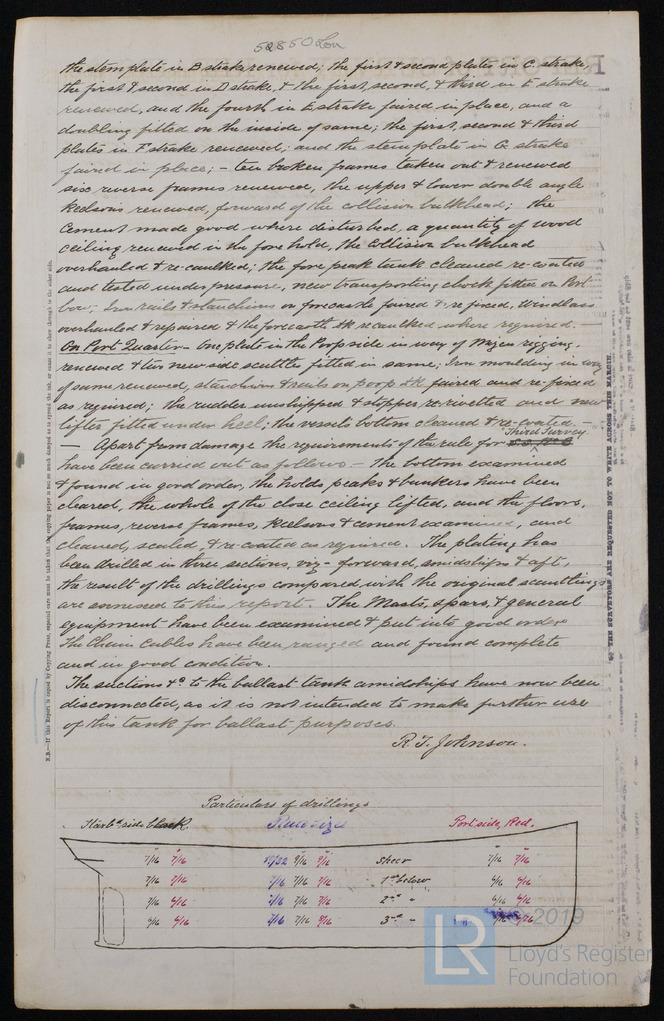 52850 Lon
the stem plate in B strake renewed; the first & second plates in C. strake,
the first & second in D strake, & the first, second, & third in E strake
renewed, and the fourth in E strake faired in place, and a
doubling fitted on the inside of same; the first, second & third
plates in F strake renewed; and the stem plate in G strake
faired in place; – ten broken frames taken out & renewed
six reverse frames renewed, the upper & lower double angle
keelsons renewed, forward of the collision bulkhead; the
Cement made good where disturbed, a quantity of wood
ceiling renewed in the fore hold, the Collision bulkhead
overhauled & re-caulked; the fore peak tank cleaned re-coated
and tested under pressure, new transporting chock fitted on Port
bow; Iron rails & stanchions on forecastle faired & re fixed, Windlass
overhauled & repaired & the forecastle dk recaulked where required. –
On Port Quarter – One plate in the Poop side in way of Mizen rigging.
renewed & two new side scuttles fitted in same; Iron moulding in way
of same renewed, stanchions & rails on poop dk faired and re-fixed
as required; the rudder unshipped & stopper re-rivetted and new
lifter fitted under heel; the vessels bottom cleaned & re-coated. –
– Apart from damage the requirements of the rule for Third Survey
have been carried out as follows – the bottom examined
& found in good order, the holds peaks & bunkers have been
cleared, the whole of the close ceiling lifted, and the floors,
frames, reverse frames, keelsons & cement examined, and
cleaned, scaled, & re-coated as required. The plating has
been drilled in three sections, viz – forward, amidships & aft,
the result of the drillings compared with the original scantlings
are annexed to this report. The Masts, spars, & general
equipment have been examined & put into good order
The Chain Cables have been ranged and found complete
and in good condition.
The suctions &c to the ballast tank amidships have now been
disconnected, as it is not intended to make further use
of this tank for ballast purposes.
R. T. Johnson.
Particulars of drillings
Starbd side black. Rule size Port side, Red.
7/16 7/16 17/32 9/16 9/16 sheer 7/16 7/16
7/16 7/16 7/16 7/16 7/16 1st below 6/16 6/16
7/16 6/16 7/16 7/16 7/16 2nd " 6/16 6/16
6/16 6/16 7/16 7/16 8/16 3rd " 6/16 6/16
N.B.—If this Report is copied by Copying Press, especial care must be taken that the copying paper is not so much damped as to spread the ink, or cause it to show through to the other side.
THE SURVEYORS ARE REQUESTED NOT TO WRITE ACROSS THIS MARGIN.
2019
LR
Lloyd's Register
Foundation